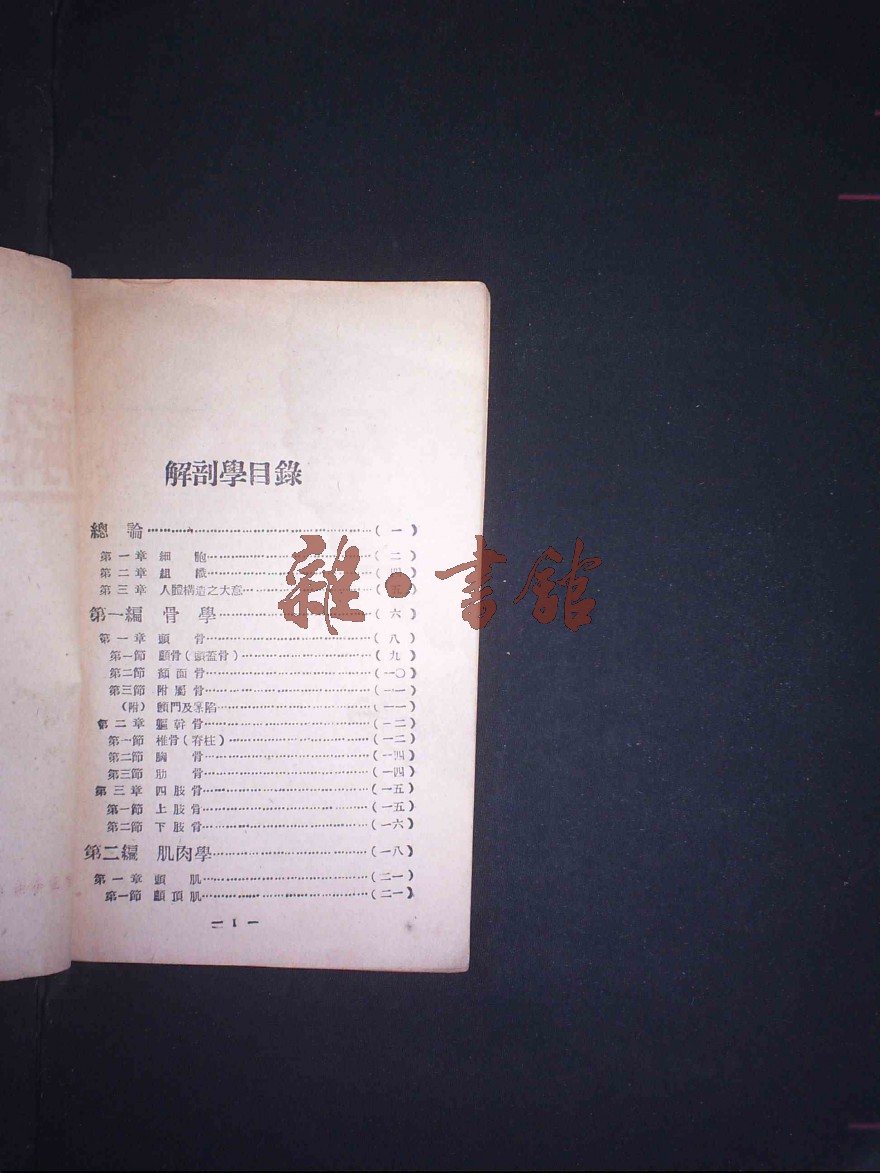 解剖學目錄
總論……(一)
第一章 細胞……(二)
第二章 組織……(四)
第三章 人體構造之大意……(五)
第一編 骨學……(六)
第一章 頭骨……(八)
第一節 顱骨(頭蓋骨)……(九)
第二節 顏面骨……(一〇)
第三節 附屬骨……(一一)
(附) 顖門及……(一一)
第二章 軀幹骨……(一二)
第一節 椎骨(脊柱)……(一二)
第二節 胸骨……(一四)
第三節 肋骨……(一四)
第三章 四肢骨……(一五)
第一節 上肢骨……(一五)
第二節 下肢骨……(一六)
第二編 肌肉學……(一八)
第一章 頭肌……(二一)
第一節 顱頂肌……(二一)
— 1 —
雜·書館